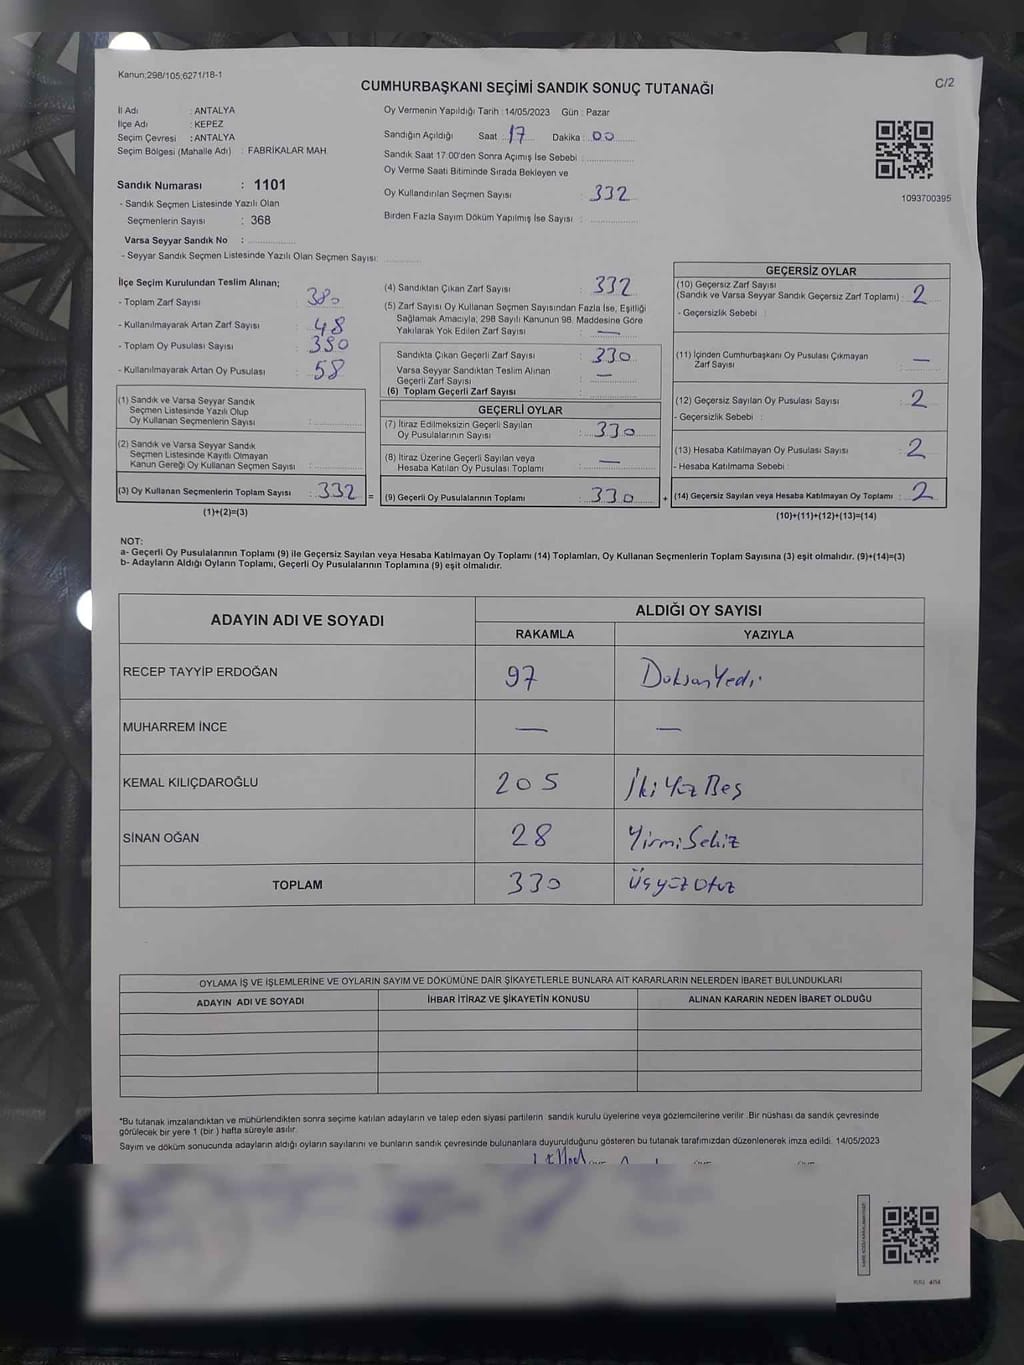 Kanun;298/105;6271/18-1
CUMHURBAŞKANI SEÇİMİ SANDIK SONUÇ TUTANAĞI
C/2
İl Adı : ANTALYA
İlçe Adı : KEPEZ
Seçim Çevresi : ANTALYA
Seçim Bölgesi (Mahalle Adı) : FABRİKALAR MAH.
Sandık Numarası : 1101
- Sandık Seçmen Listesinde Yazılı Olan
Seçmenlerin Sayısı : 368
Varsa Seyyar Sandık No :
- Seyyar Sandık Seçmen Listesinde Yazılı Olan Seçmen Sayısı:
Oy Vermenin Yapıldığı Tarih : 14/05/2023 Gün : Pazar
Sandığın Açıldığı Saat : 17 Dakika : 00
Sandık Saat 17:00'den Sonra Açımış İse Sebebi :
Oy Verme Saati Bitiminde Sırada Bekleyen ve
Oy Kullandırılan Seçmen Sayısı : 332
Birden Fazla Sayım Döküm Yapılmış İse Sayısı :
1093700395
İlçe Seçim Kurulundan Teslim Alınan;
- Toplam Zarf Sayısı : 380
- Kullanılmayarak Artan Zarf Sayısı : 48
- Toplam Oy Pusulası Sayısı : 380
- Kullanılmayarak Artan Oy Pusulası : 58
(1) Sandık ve Varsa Seyyar Sandık
Seçmen Listesinde Yazılı Olup
Oy Kullanan Seçmenlerin Sayısı :
(2) Sandık ve Varsa Seyyar Sandık
Seçmen Listesinde Kayıtlı Olmayan
Kanun Gereği Oy Kullanan Seçmen Sayısı :
(3) Oy Kullanan Seçmenlerin Toplam Sayısı : 332 =
(1)+(2)=(3)
(4) Sandıktan Çıkan Zarf Sayısı : 332
(5) Zarf Sayısı Oy Kullanan Seçmen Sayısından Fazla İse, Eşitliği
Sağlamak Amacıyla; 298 Sayılı Kanunun 98. Maddesine Göre
Yakılarak Yok Edilen Zarf Sayısı : —
Sandıkta Çıkan Geçerli Zarf Sayısı : 330
Varsa Seyyar Sandıktan Teslim Alınan
Geçerli Zarf Sayısı : —
(6) Toplam Geçerli Zarf Sayısı :
GEÇERLİ OYLAR
(7) İtiraz Edilmeksizin Geçerli Sayılan
Oy Pusulalarının Sayısı : 330
(8) İtiraz Üzerine Geçerli Sayılan veya
Hesaba Katılan Oy Pusulası Toplamı : —
(9) Geçerli Oy Pusulalarının Toplamı : 330 +
GEÇERSİZ OYLAR
(10) Geçersiz Zarf Sayısı
(Sandık ve Varsa Seyyar Sandık Geçersiz Zarf Toplamı) : 2
- Geçersizlik Sebebi :
(11) İçinden Cumhurbaşkanı Oy Pusulası Çıkmayan
Zarf Sayısı : —
(12) Geçersiz Sayılan Oy Pusulası Sayısı : 2
- Geçersizlik Sebebi :
(13) Hesaba Katılmayan Oy Pusulası Sayısı : 2
- Hesaba Katılmama Sebebi :
(14) Geçersiz Sayılan veya Hesaba Katılmayan Oy Toplamı : 2
(10)+(11)+(12)+(13)=(14)
NOT:
a- Geçerli Oy Pusulalarının Toplamı (9) ile Geçersiz Sayılan veya Hesaba Katılmayan Oy Toplamı (14) Toplamları, Oy Kullanan Seçmenlerin Toplam Sayısına (3) eşit olmalıdır. (9)+(14)=(3)
b- Adayların Aldığı Oyların Toplamı, Geçerli Oy Pusulalarının Toplamına (9) eşit olmalıdır.
ADAYIN ADI VE SOYADI ALDIĞI OY SAYISI
RAKAMLA YAZIYLA
RECEP TAYYİP ERDOĞAN 97 DoksanYedi
MUHARREM İNCE — —
KEMAL KILIÇDAROĞLU 205 İkiYüzBeş
SİNAN OĞAN 28 YirmiSekiz
TOPLAM 330 ÜçyüzOtuz
OYLAMA İŞ VE İŞLEMLERİNE VE OYLARIN SAYIM VE DÖKÜMÜNE DAİR ŞİKAYETLERLE BUNLARA AİT KARARLARIN NELERDEN İBARET BULUNDUKLARI
ADAYIN ADI VE SOYADI İHBAR İTİRAZ VE ŞİKAYETİN KONUSU ALINAN KARARIN NEDEN İBARET OLDUĞU
*Bu tutanak imzalandıktan ve mühürlendikten sonra seçime katılan adayların ve talep eden siyasi partilerin sandık kurulu üyelerine veya gözlemcilerine verilir .Bir nüshası da sandık çevresinde
görülecek bir yere 1 (bir ) hafta süreyle asılır.
Sayım ve döküm sonucunda adayların aldığı oyların sayılarını ve bunların sandık çevresinde bulunanlara duyurulduğunu gösteren bu tutanak tarafımızdan düzenlenerek imza edildi. 14/05/2023